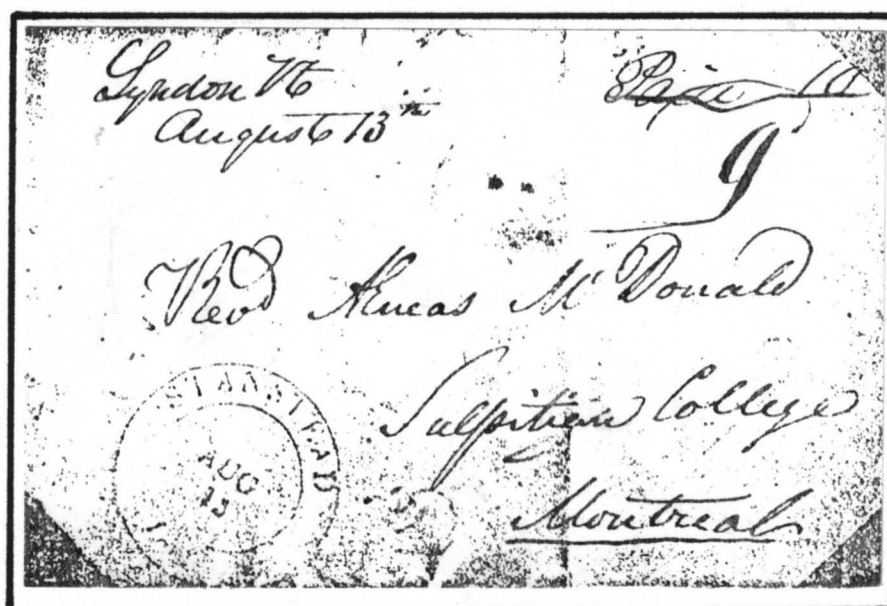 Lyndon Vt
August 13th
Paid 10
9
Revd Aeneas McDonald
Sulpitian College
Montreal
STANSTEAD
AUG
13